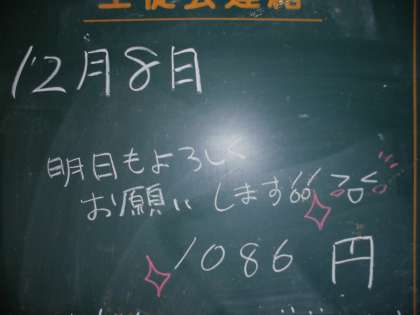 生徒会連絡
12月8日
明日もよろしく
お願いします
1086円